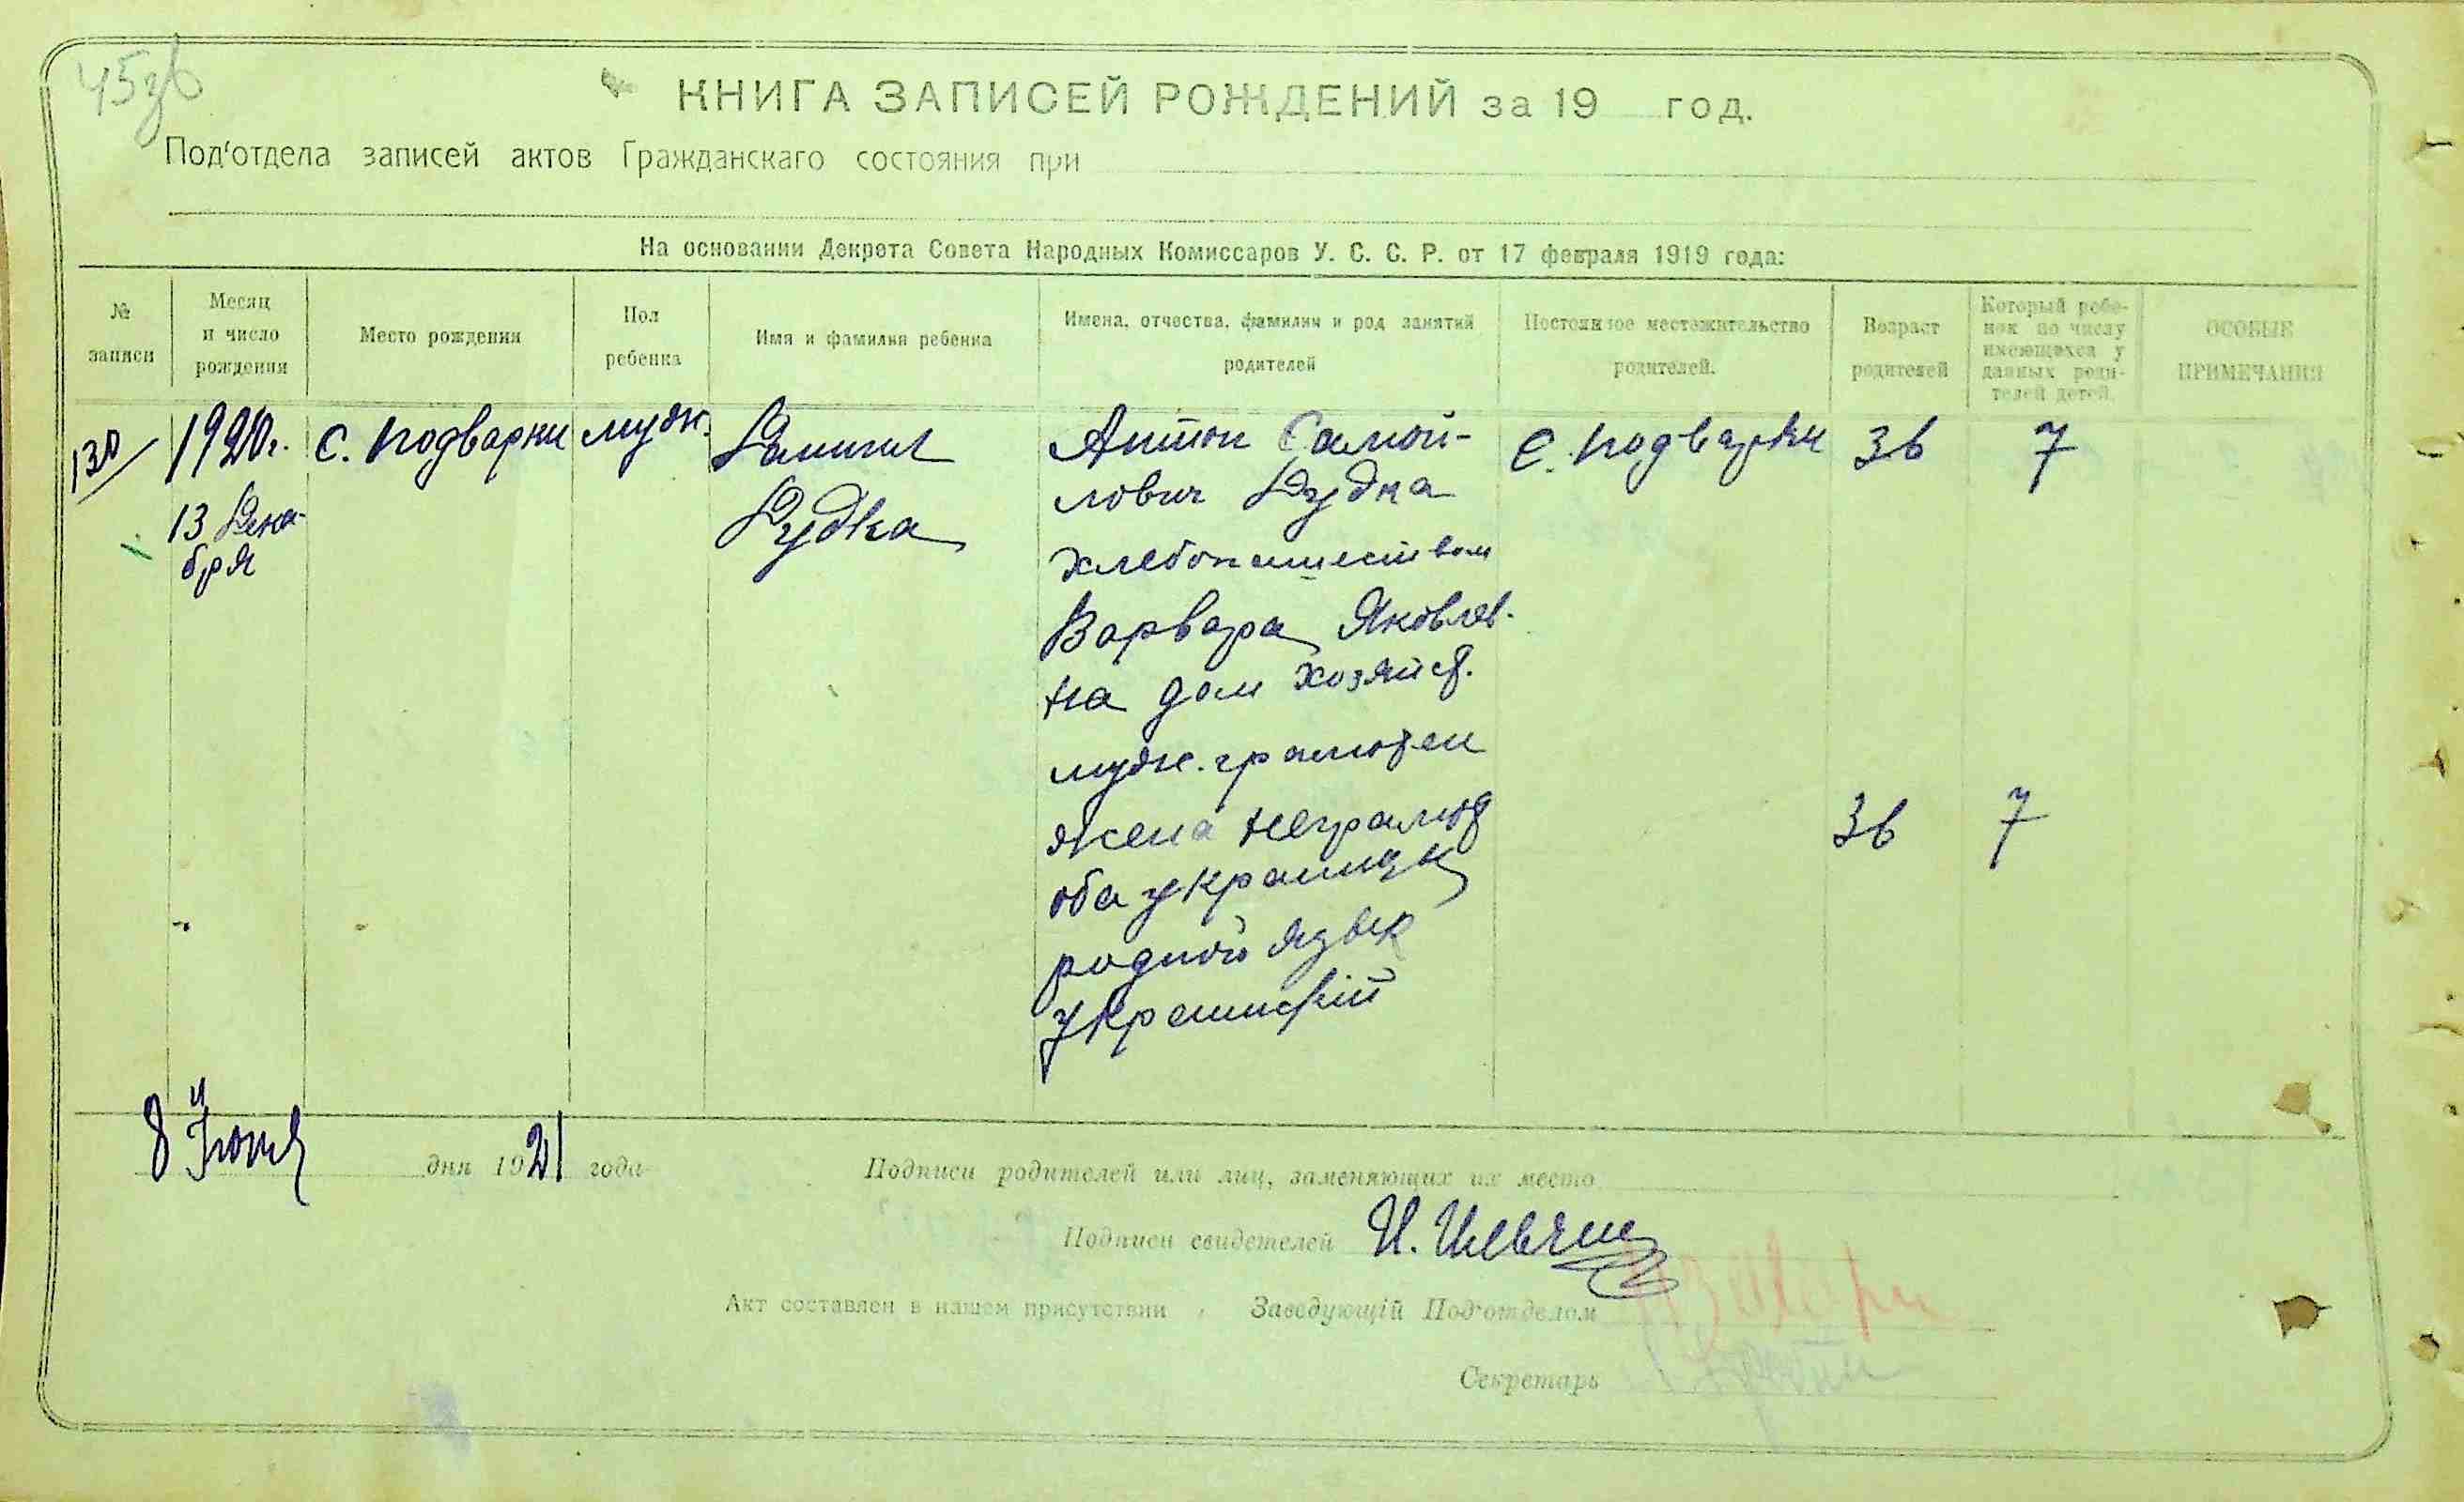 45зв
КНИГА ЗАПИСЕЙ РОЖДЕНИЙ за 19 год.
Под'отдела записей актов Гражданскаго состояния при
На основании Декрета Совета Народных Комиссаров У. С. С. Р. от 17 февраля 1919 года:
№ записи
Месяц и число рождения
Место рождения
Пол ребенка
Имя и фамилия ребенка
Имена, отчества, фамилии и род занятий родителей
Постоянное местожительство родителей.
Возраст родителей
Который ребенок по числу имеющихся у данных родителей детей.
ОСОБЫЕ ПРИМЕЧАНИЯ
130 1920г. с. Подварки мужс. Даниил Антон Самой- С. Подварки 36 7
13 Дека- Дудка лович Дудка
бря хлебопашеством
Варвара Яковлев-
на дом хозяйст.
мужс. грамотен
жена неграмот 36 7
оба украинцы
родной язык
украинский
8 Июня дня 1921 года
Подписи родителей или лиц, заменяющих их место
Подписи свидетелей И. Ильяше
Акт составлен в нашем присутствии Заведующій Под'отделом
Секретарь